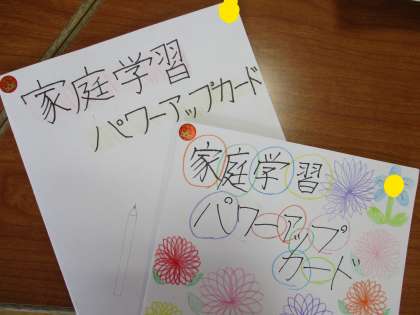 家庭学習
パワーアップカード
家庭学習
パワーアップ
カード